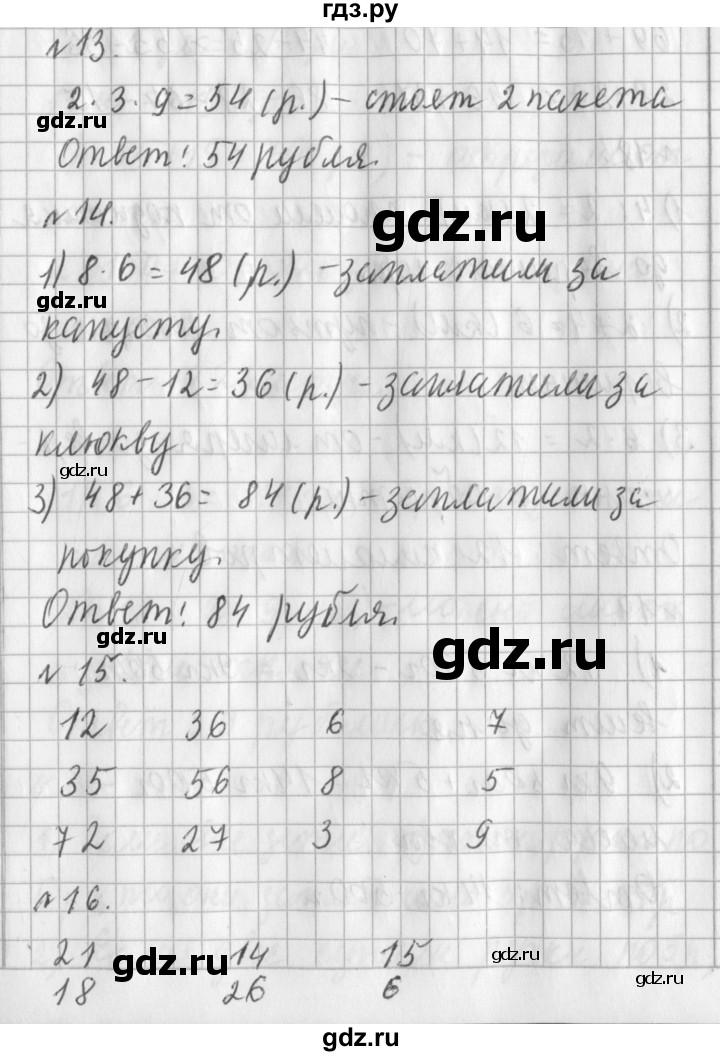 гдз.ру
№13.
2·3·9=54(р.) – стоят 2 пакета
gdz.ru
Ответ: 54 рубля.
№14.
gdz.ru
1) 8·6=48(р.) – заплатили за
капусту.
2) 48–12=36(р.) – заплатили за
клюкву
gdz.ru
3) 48+36= 84(р.) – заплатили за
покупку.
Ответ: 84 рубля.
gdz.ru
gdz.ru
№15.
12 36 6 7
35 56 8 5
72 27 3 9
№16.
21 14 15
gdz.ru gdz.ru gdz.ru
18 26 6
gdz.ru
gdz.ru